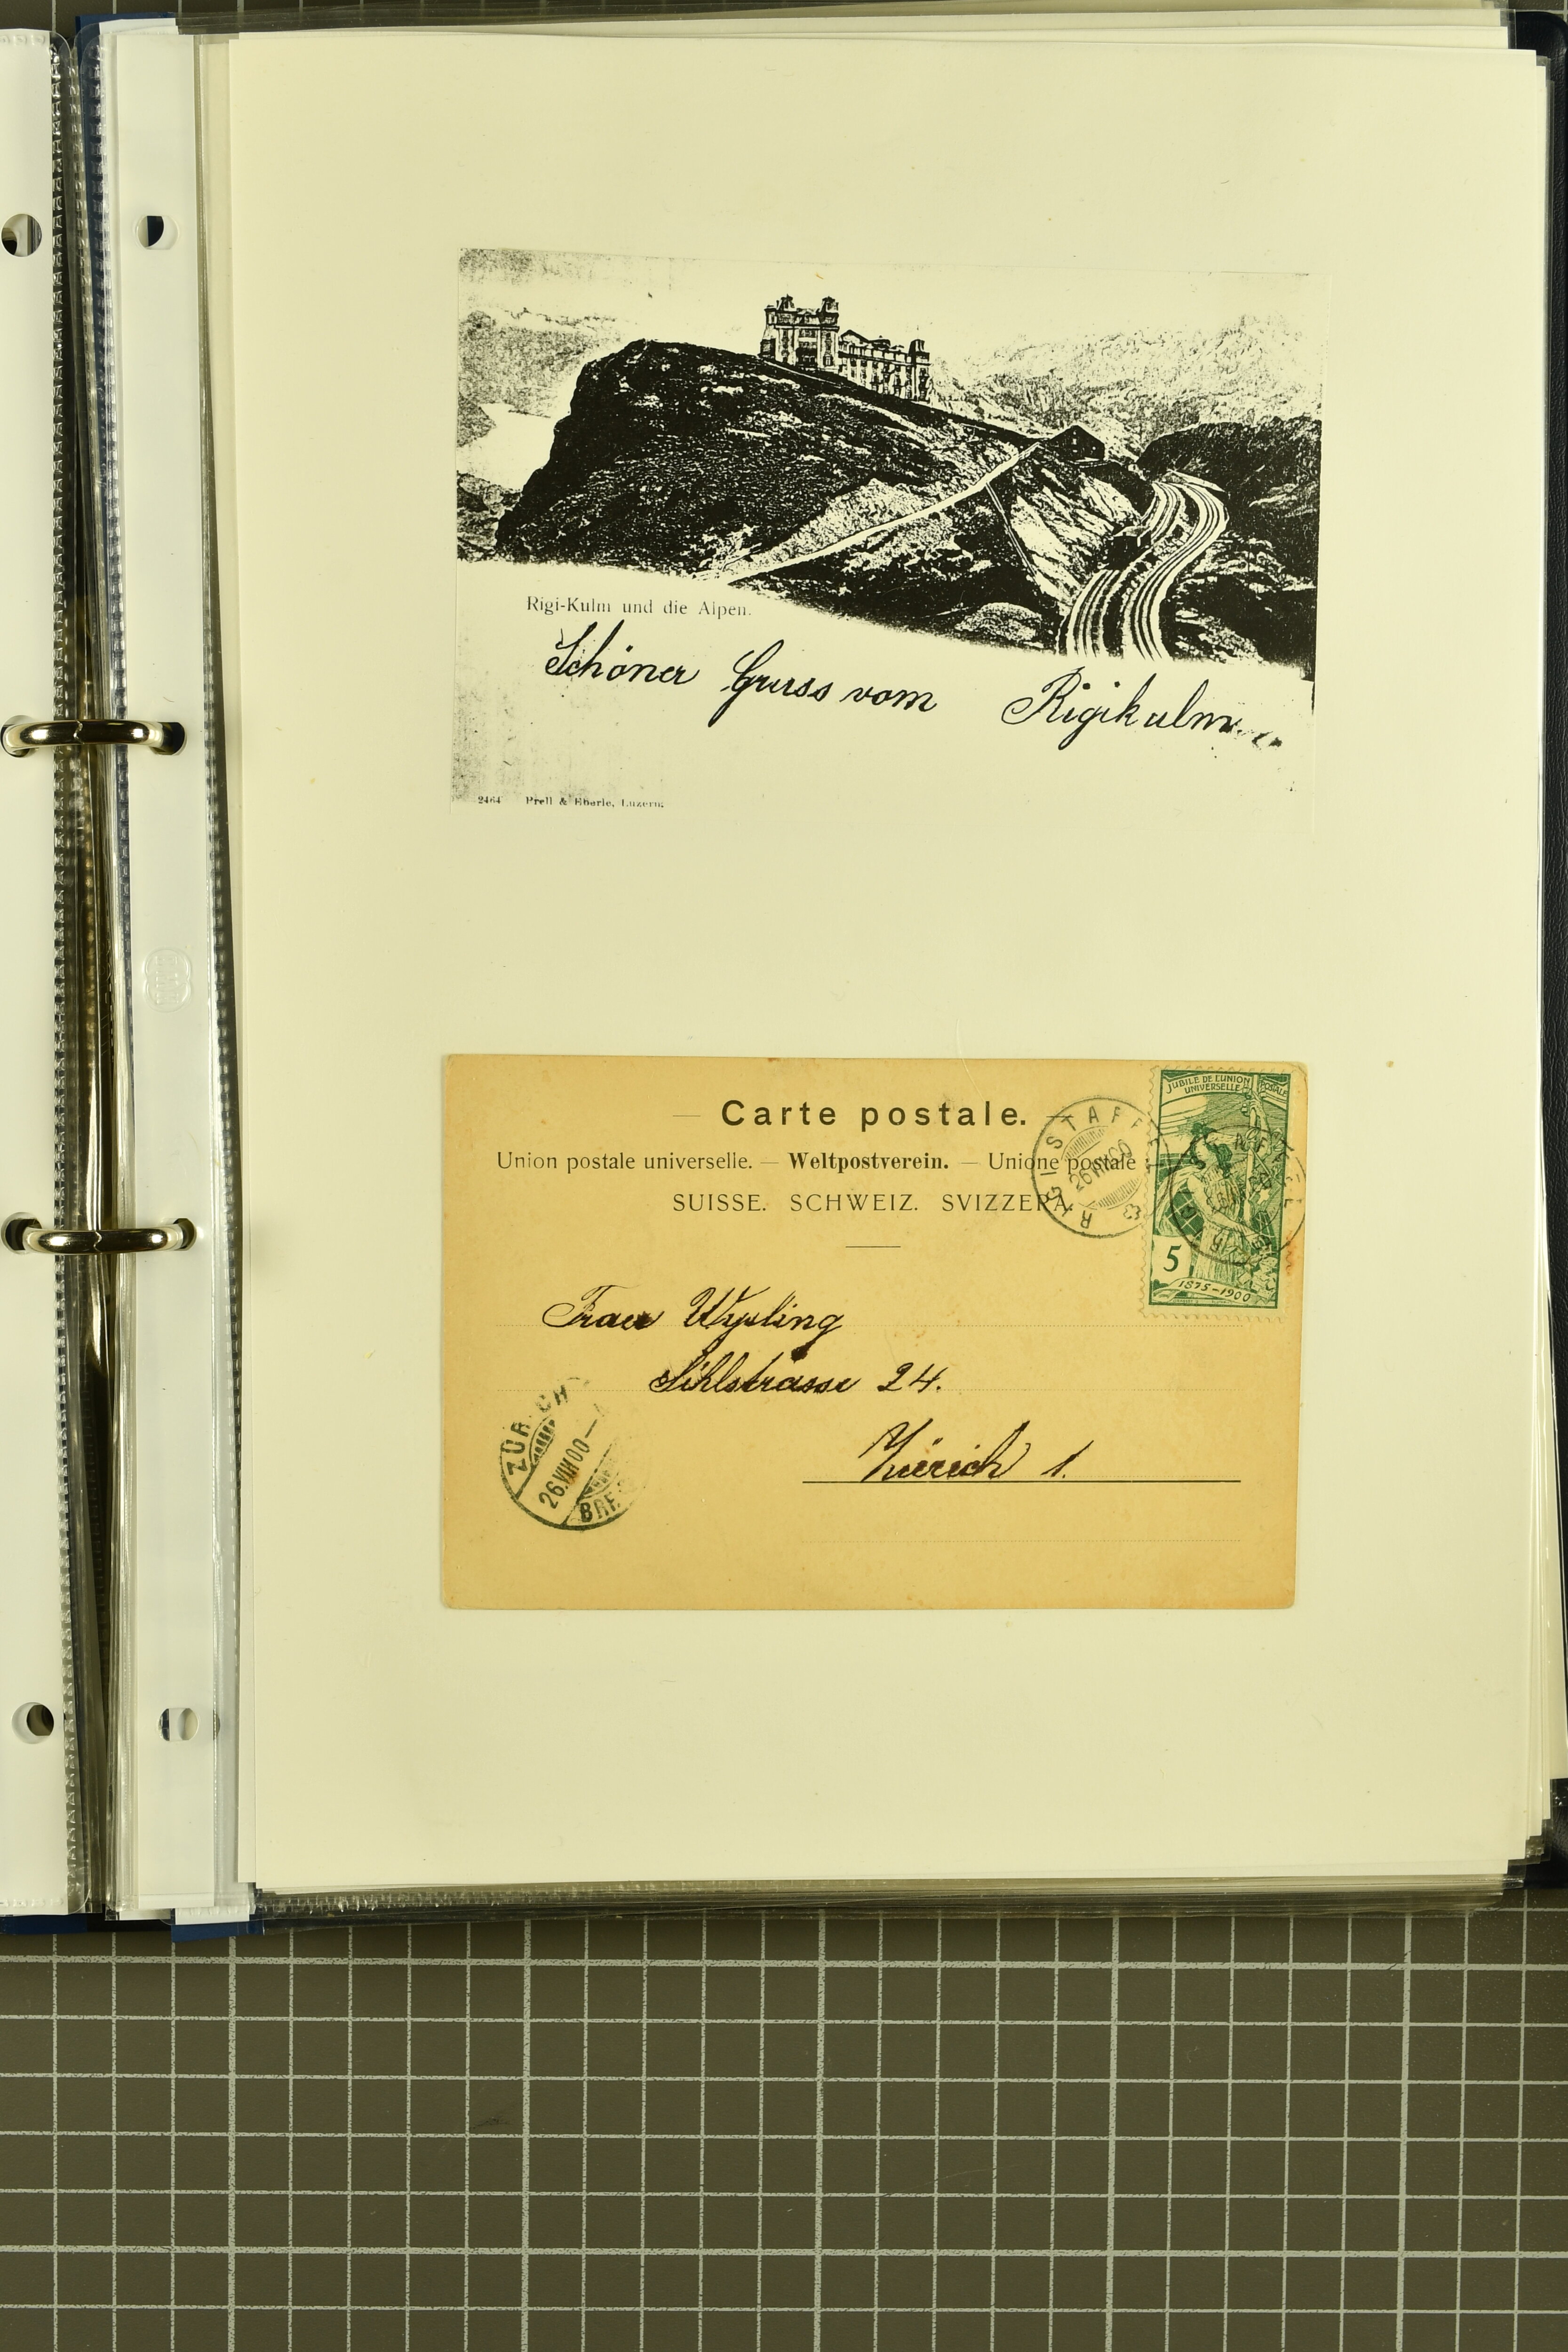 Rigi-Kulm und die Alpen.
Schöner Gruss vom Rigikulm
2464 Prell & Eberle, Luzern.
— Carte postale. —
Union postale universelle. — Weltpostverein. — Unione postale
SUISSE. SCHWEIZ. SVIZZERA.
RIGI STAFFEL
26 VIII 00
JUBILÉ DE L'UNION POSTALE
UNIVERSELLE
5
1875-1900
Frau Wysling
Sihlstrasse 24.
Zürich 1.
ZÜRICH
26.VIII.00—
BRF.